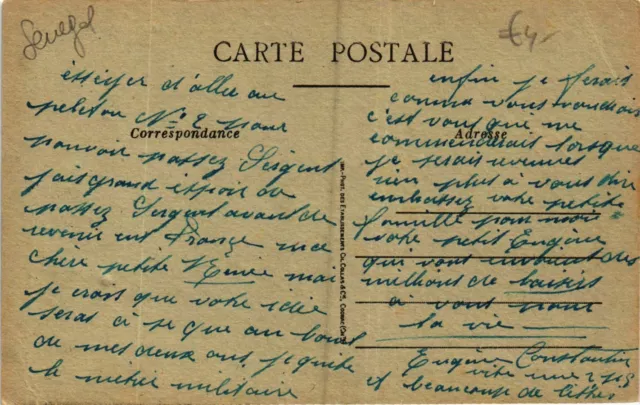 Senegal
€4-
CARTE POSTALE
Correspondance
Adresse
essayer d'allee au
peleton No 2 pour
pouvoir passez Sergent
jais grand espoir de
passez Sergent avant de
revenir en France ma
chere petite Renée mai
je crois que votre idée
seras à se que au bout
de mes deux ans je quite
le metier militaire
enfin je ferais
comma vous voudrais
c'est vous qui me
commenderait lorsque
je serais revenus
rien plus a vous dire
embassez votre petite
famille pour moi
votre petit Eugène
qui vous envoient des
millions de baisers
a vous pour
la vie
Eugène Constantin
vite une
et beaucoup de lettres
PHOT. DES ETABLISSEMENTS CH. COLLAS & Cie, COGNAC